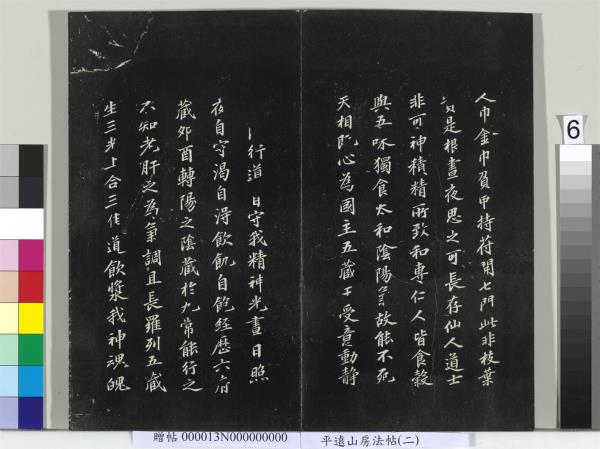 人巾金巾負甲持符開七門此非枝葉
實是根晝夜思之可長存仙人道士
非可神積精所致和專仁人皆食穀
與五味獨食太和陰陽氣故能不死
天相既心為國主五藏王受意動靜
行道 日守我精神光晝日照
夜自守渴自得飲飢自飽經歷六府
藏卯酉轉陽之陰藏於九常能行之
不知老肝之為氣調且長羅列五藏
生三光上合三焦道飲漿我神魂魄
6
贈帖 000013N000000000 平遠山房法帖(二)